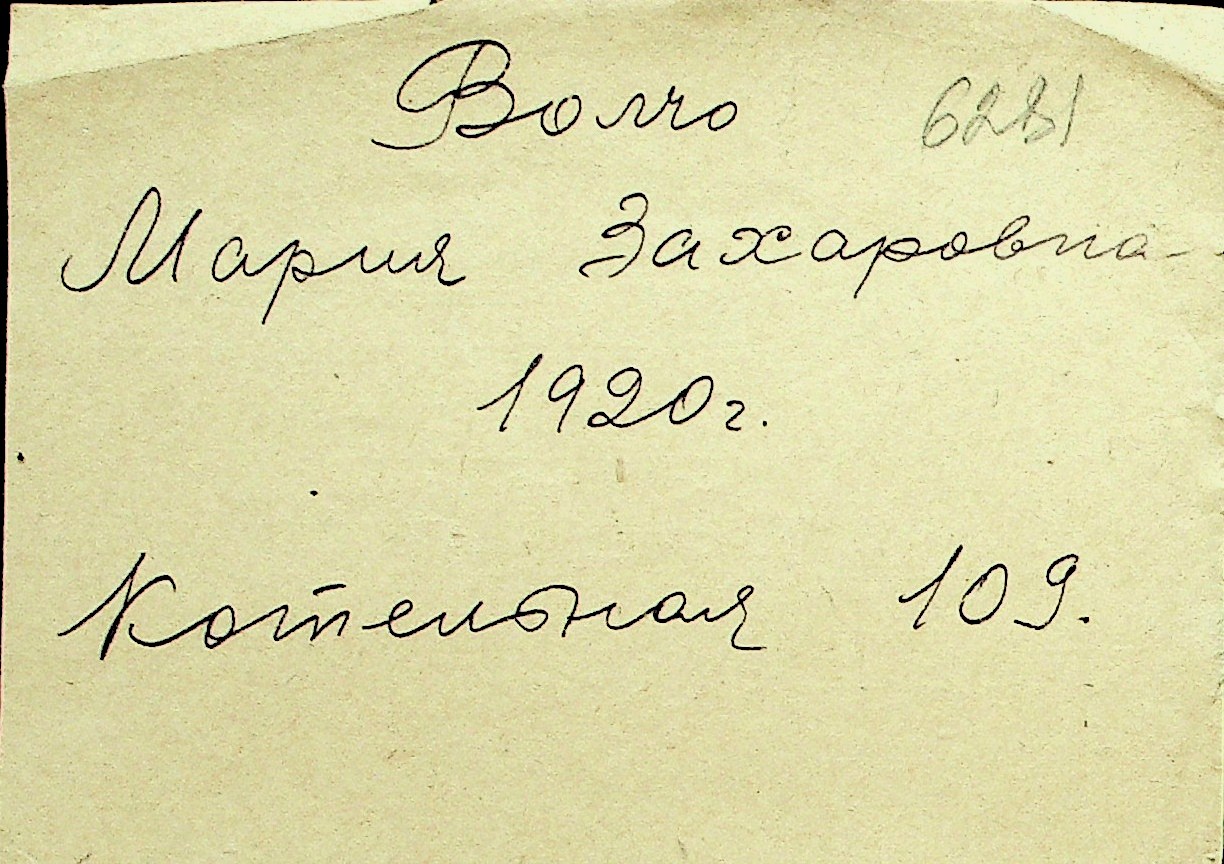 Волчо
Мария Захаровна
1920г.
Котельная 109.